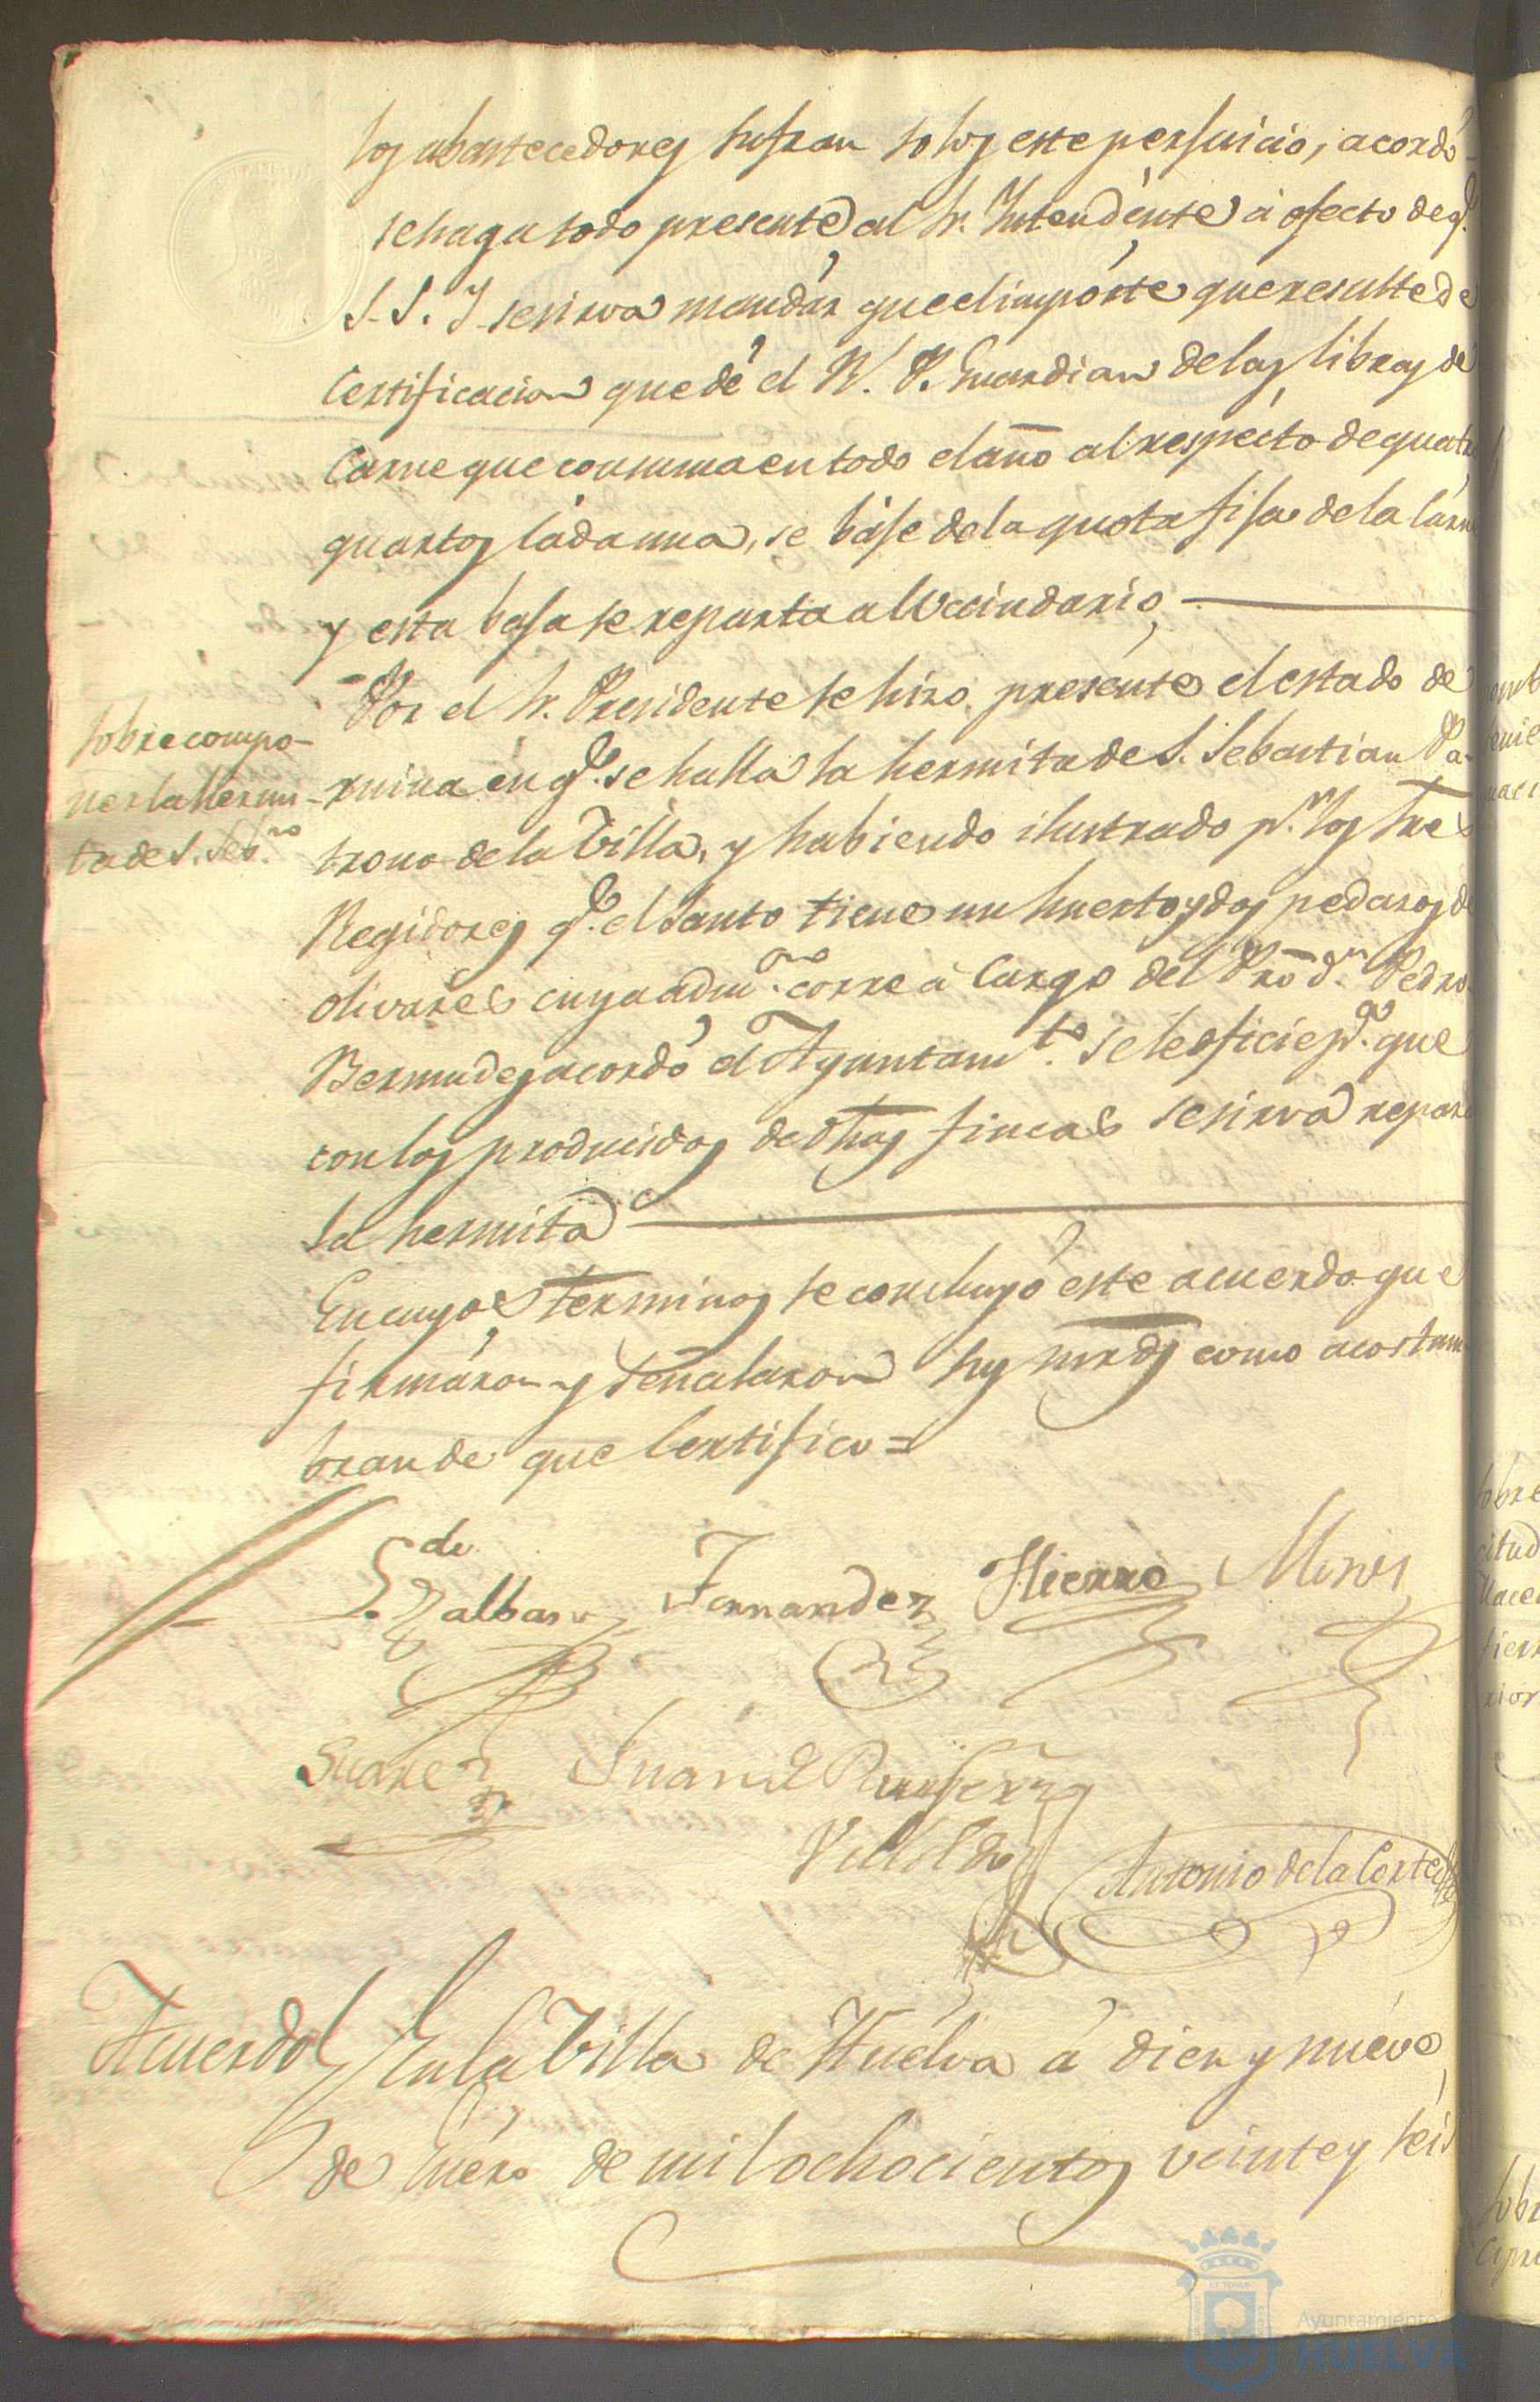 los abastecedores sufran solos este perjuicio, acordó
se haga todo presente al Sr. Yntendente á efecto de q.e
S. S. Y. se sirva mandar que el importe que resulte de
Certificacion que dé el R. P. Guardian de las libras de
Carne que consuma en todo el año al respecto de quatro
quartos cada una, se baje de la quota fija de la Carne
y esta baja se reparta al Vecindario,
Sobre compo-
ner la hermi-
ta de S. Seb.no
Por el Sr. Presidente se hizo presente el estado de
ruina en q.e se halla la hermita de S. Sebastian Pa-
trono de la Villa, y habiendo ilustrado p.r los Sres
Regidores q.e el Santo tiene un huerto y dos pedazos de
olivares cuya adm.on corre á Cargo del Pro d.n Pedro
Bermudez acordó el Ayuntam.to se le oficie p.a que
con los producidos de dhas fincas se sirva repar
la hermita
En cuyos terminos se concluyó este acuerdo que
firmaron y señalaron sus mrds como acostum
bran de que Certifico =
Fernandez Hierro
Suarez Juan
Antonio de la Corte
Acuerdo En la Villa de Huelva á diez y nueve
de Enero de mil ochocientos veinte y seis
Ayuntamiento
HUELVA